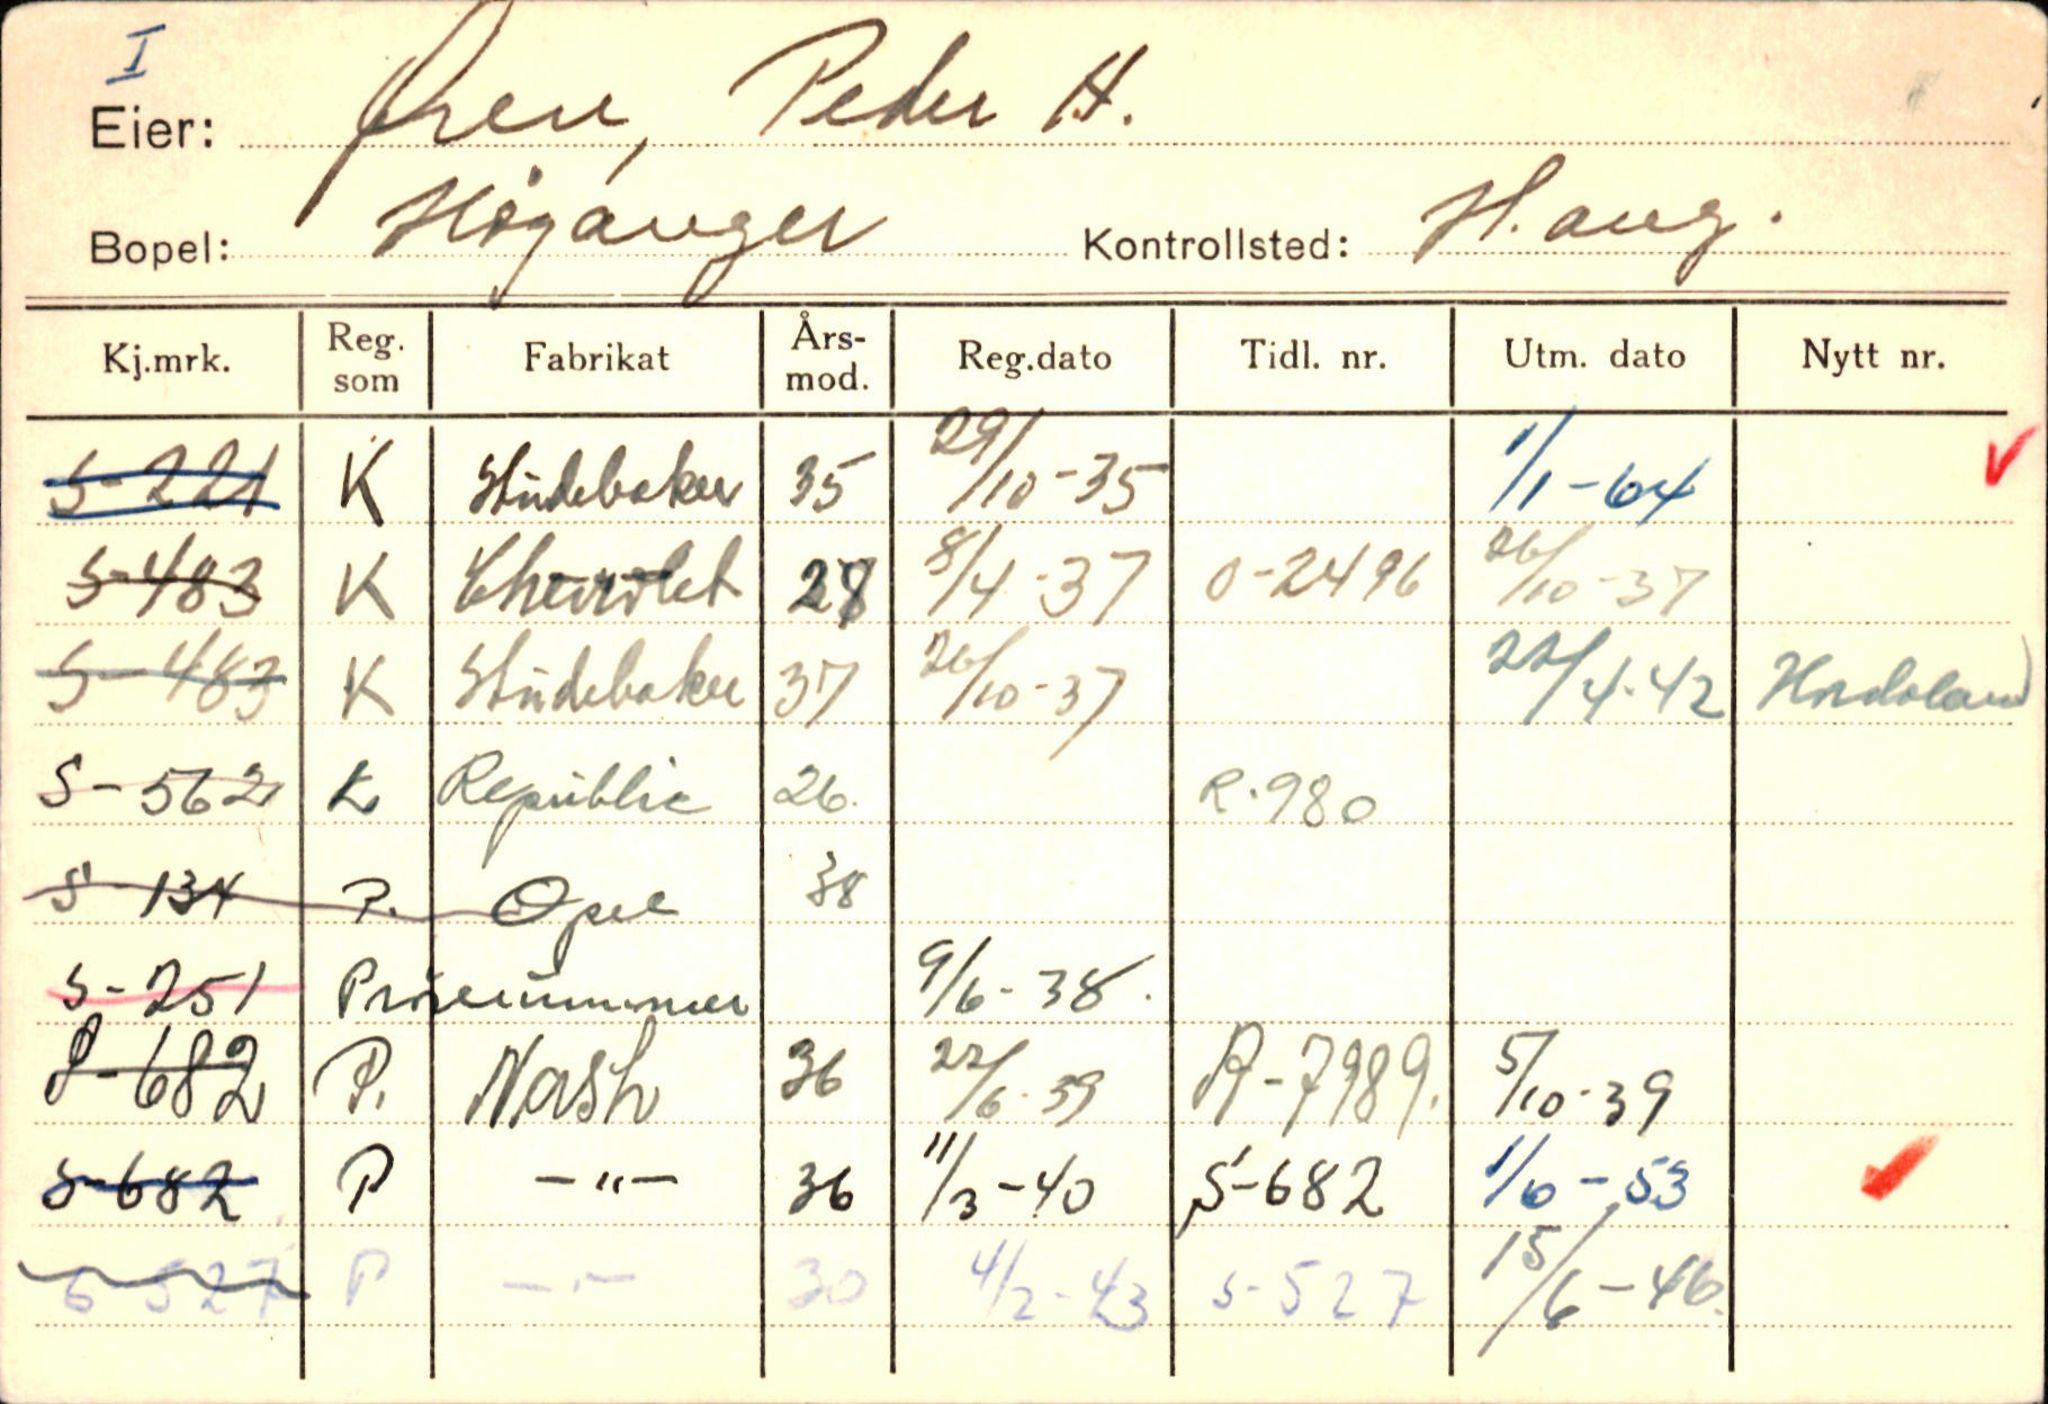 I
Eier: Øren, Peder H.
Bopel: Høyanger Kontrollsted: H.ang.
Kj.mrk. Reg. som Fabrikat Års-mod. Reg.dato Tidl. nr. Utm. dato Nytt nr.
S-221 K Studebaker 35 29/10-35 1/1-64
S-483 K Chevrolet 28 8/4-37 O-2496 26/10-37
S-483 K Studebaker 37 26/10-37 22/4-42 Hordaland
S-562 L Republic 26. R-980
S-134 P. Opel 38
S-251 Prøvenummer 9/6-38.
S-682 P. Nash 36 22/6-39 R-7989. 5/10-39
S-682 P -"- 36 11/3-40 S-682 1/6-53
S-527 P -"- 30 4/2-43 S-527 15/6-46.